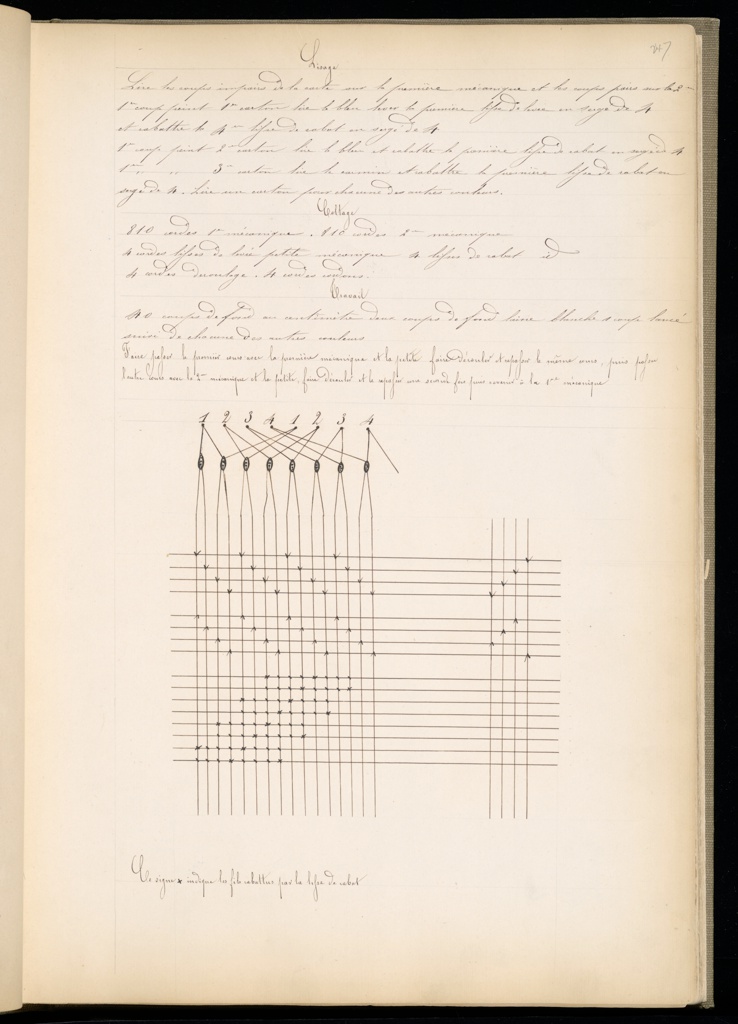 347
Lisage
Lire les coups impairs de la carte sur la première mécanique et les coups pairs sur la 2me
1er coup point 1er carton lire le bleu lever la première lisse de levée en sergé de 4
et rabattre la 4me lisse de rabat en sergé de 4
1er coup point 2me carton lire le bleu et rabattre la première lisse de rabat en sergé de 4
1er " " 3me carton lire le carmin et rabattre la première lisse de rabat en
sergé de 4. Lire un carton pour chacune des autres couleurs.
Colletage
810 cordes 1re mécanique. 810 cordes 2me mécanique
4 cordes lisses de levée petite mécanique 4 lisses de rabat id
4 cordes déroulage. 4 cordes cordons.
Travail
40 coups de fond au centimètre deux coups de fond laine blanche 1 coup lancé
suivi de chacune des autres couleurs
Faire passer le premier cours avec la première mécanique et la petite faire dérouler et repasser le même cours, puis passer
l'autre cours avec la 2me mécanique et la petite, faire dérouler et le repasser une seconde fois pour revenir à la 1re mécanique
1 2 3 4 1 2 3 4
Ce signe x indique les fils rabattus par la lisse de rabat